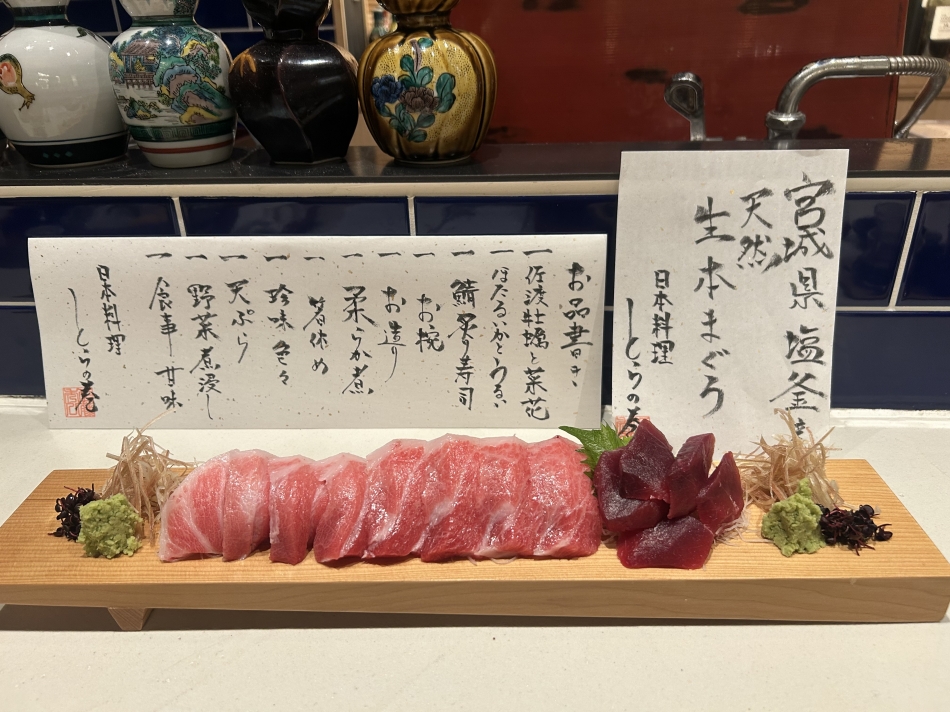 お品書き
一 佐渡牡蠣と菜花
一 ほたるいかとうるい
一 鯖炙り寿司
一 お椀
一 お造り
一 柔らか煮
一 箸休め
一 珍味色々
一 天ぷら
一 野菜煮浸し
一 食事 甘味
日本料理
しとらの巻
宮城県 塩釜
天然
生本まぐろ
日本料理
しとらの巻